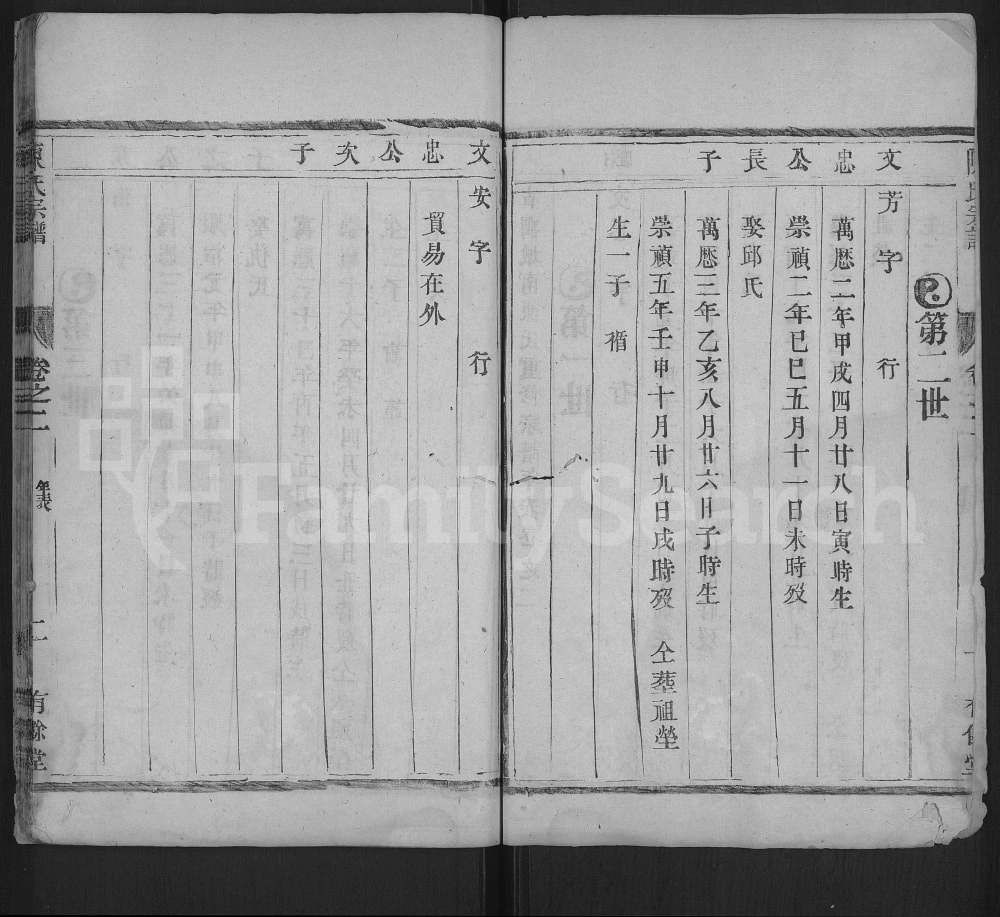 第二世
文忠公長子
芳字　行
萬厯二年甲戌四月廿八日寅時生
崇禎二年已巳五月十一日未時歿
娶邱氏
萬厯三年乙亥八月廿六日子時生
崇禎五年壬申十月廿九日戌時歿　仝塟祖塋
生一子　楯
文忠公次子
安字　行
貿易在外
陳氏宗譜
卷之二　年表　二　有餘堂
FamilySearch